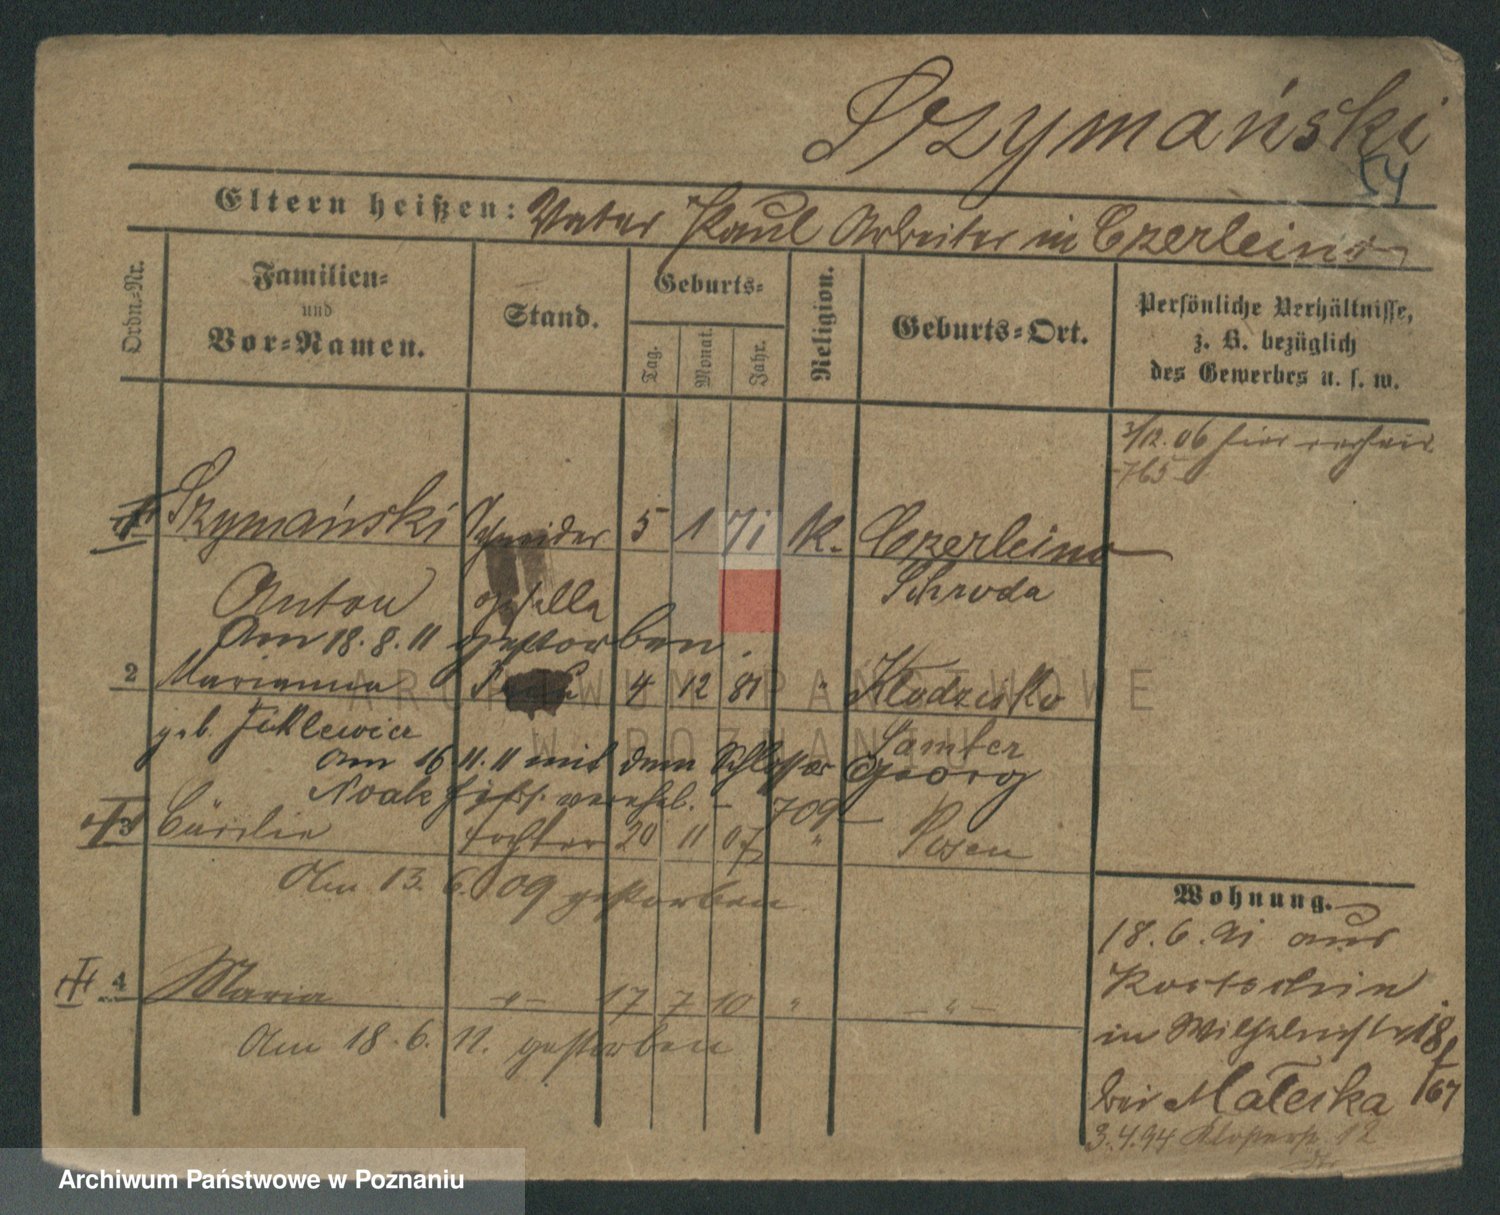 Szymański
54
Eltern heißen: Vater Paul Arbeiter in Czerleino
Ordn.-Nr.
Familien-
und
Vor-Namen.
Stand.
Geburts-
Tag. Monat. Jahr.
Religion.
Geburts-Ort.
Persönliche Verhältnisse,
z. B. bezüglich
des Gewerbes u. s. w.
3/12.06 hier verheir.
765
1 Szymański Schneider 5 1 71 K. Czerleino
Anton geselle Schroda
Am 18.8.11 gestorben.
2 Marianna Frau 4 12 81 "
geb. Samter
Am 16 11.11 mit dem Schlosser Georg
Noak hier verehel. - 709
3 Cäcilie Tochter 20 11 07 " Posen
Am 13. 6. 09 gestorben.
4 Maria -"- 17 7 10 " -"-
Am 18.6.11. gestorben
Wohnung.
18.6.91 aus
Kostschin
in Wilhelmstr 18
bei Mateska
3.4.94 Klosterstr 12
ARCHIWUM PAŃSTWOWE
W POZNANIU
Archiwum Państwowe w Poznaniu